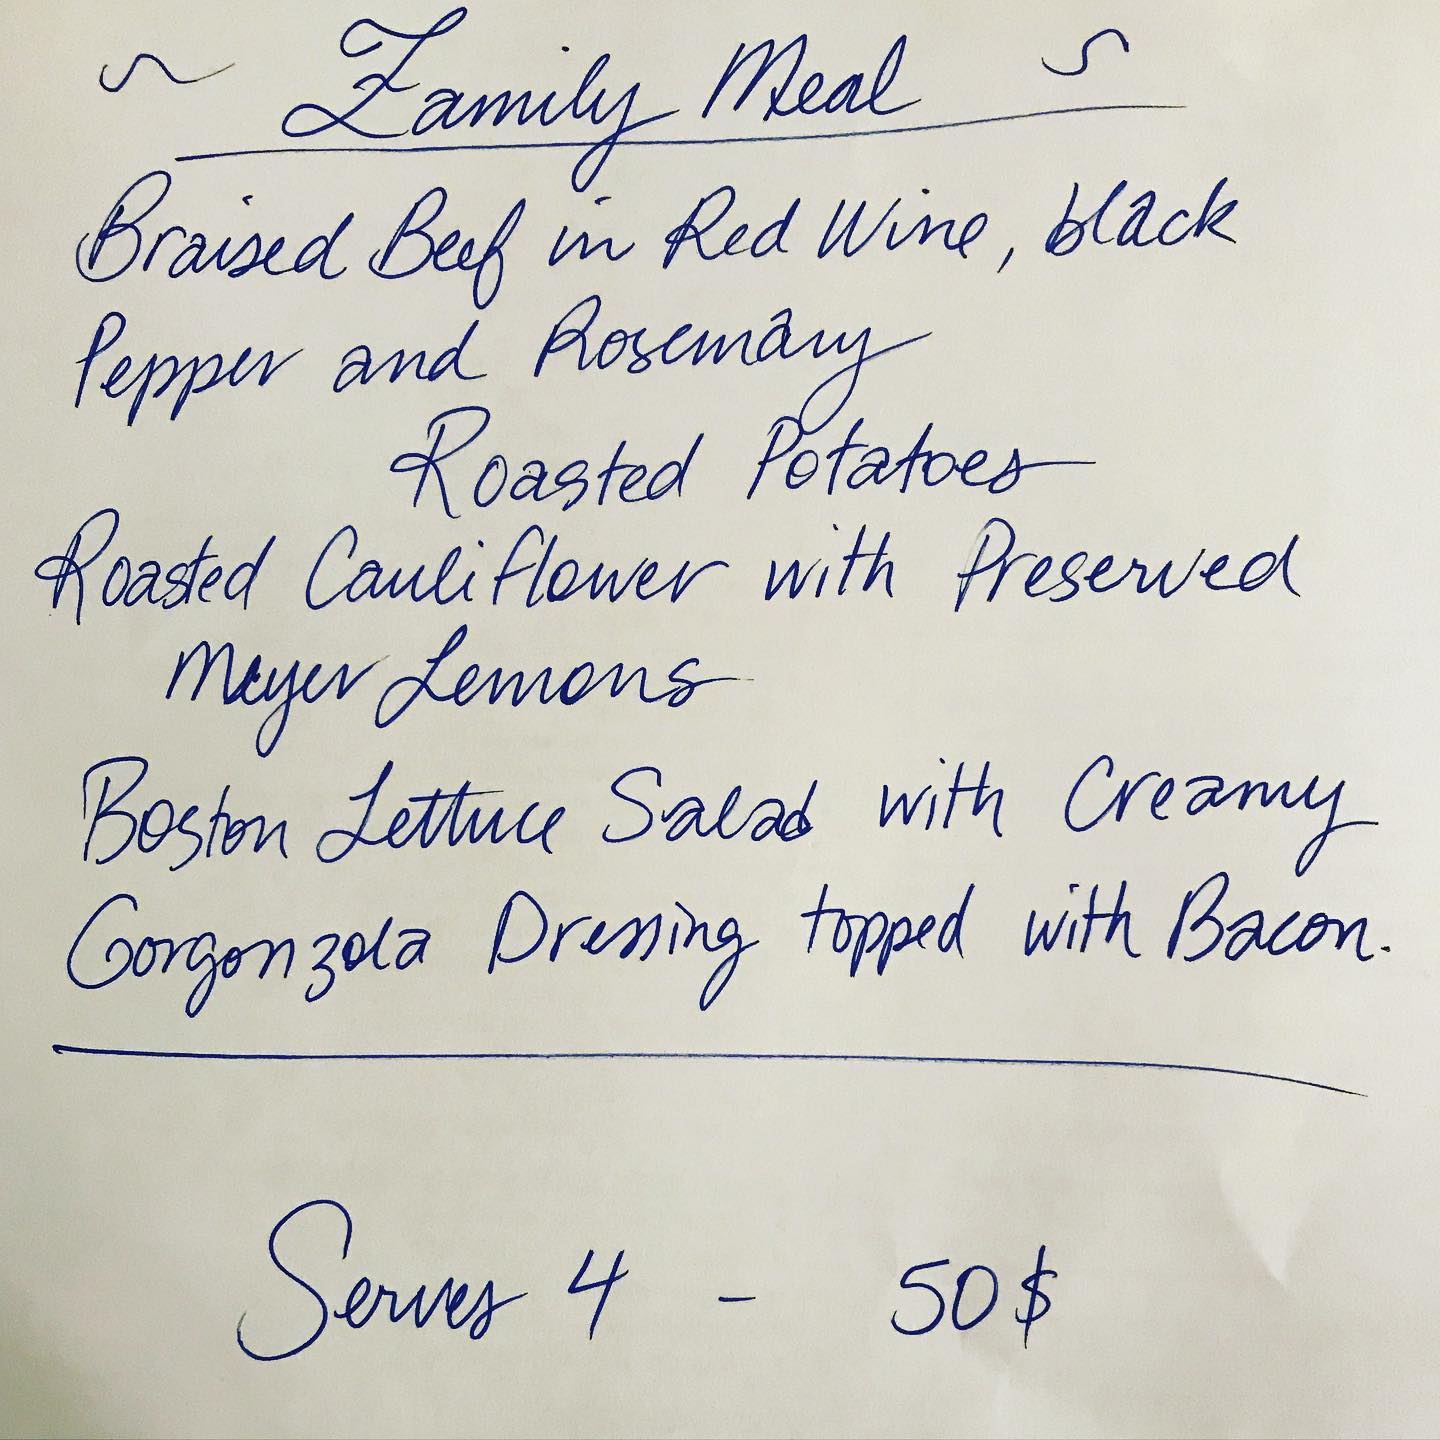 Family Meal
Braised Beef in Red Wine, black
Pepper and Rosemary
Roasted Potatoes
Roasted Cauliflower with Preserved
Meyer Lemons
Boston Lettuce Salad with Creamy
Gorgonzola Dressing topped with Bacon.
Serves 4 - 50$